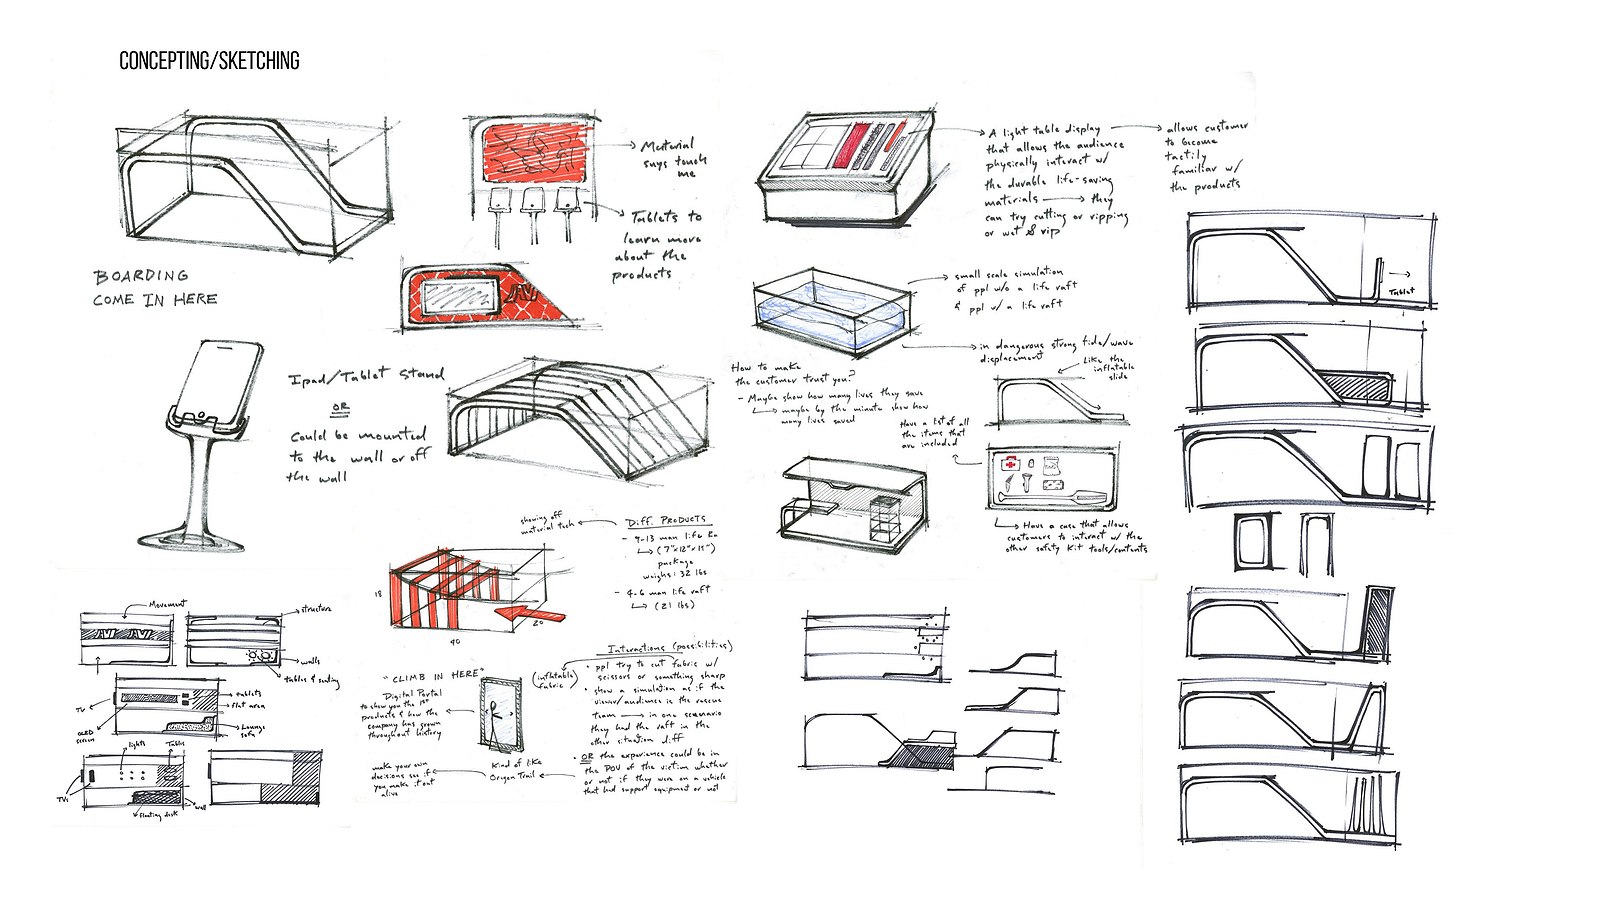 CONCEPTING/SKETCHING
BOARDING
COME IN HERE
Material
says touch
me
Tablets to
learn more
about the
products
Ipad/Tablet Stand
OR
Could be mounted
to the wall or off
the wall
A light table display
that allows the audience
physically interact w/
the durable life-saving
materials
they
can try cutting or ripping
or wet & rip
allows customer
to become
tactily
familiar w/
the products
small scale simulation
of ppl w/o a life raft
& ppl w/ a life raft
in dangerous strong tide/wave
displacement
Like the
inflatable
slide
How to make
the customer trust you?
- Maybe show how many lives they save
maybe by the minute show how
many lives saved
Have a list of all
the items that
are included
Have a case that allows
customers to interact w/ the
other safety kit tools/contents
Tablet
showing off
material tech
Diff. PRODUCTS
- 9-13 man life
(7"x12"x15")
package
weighs: 32 lbs
- 4-6 man life raft
(21 lbs)
18
40
20
Movement
AVI AVI
structure
walls
tables & seating
TV
OLED
screen
tablets
flat area
Lounge
sofa
lights
Tables
TVs
floating desk
wall
"CLIMB IN HERE"
Digital Portal
to show you the 1st
products & how the
company has grown
throughout history
make your own
decisions see if
you make it out
alive
Kind of like
Oregon Trail
Interactions (possibilities)
(inflatable
fabric)
• ppl try to cut fabric w/
scissors or something sharp
• show a simulation as if the
viewer/audience is the rescue
team
in one scenario
they had the raft in the
other situation diff
• OR the experience could be in
the POV of the victim whether
or not if they were on a vehicle
that had support equipment or not